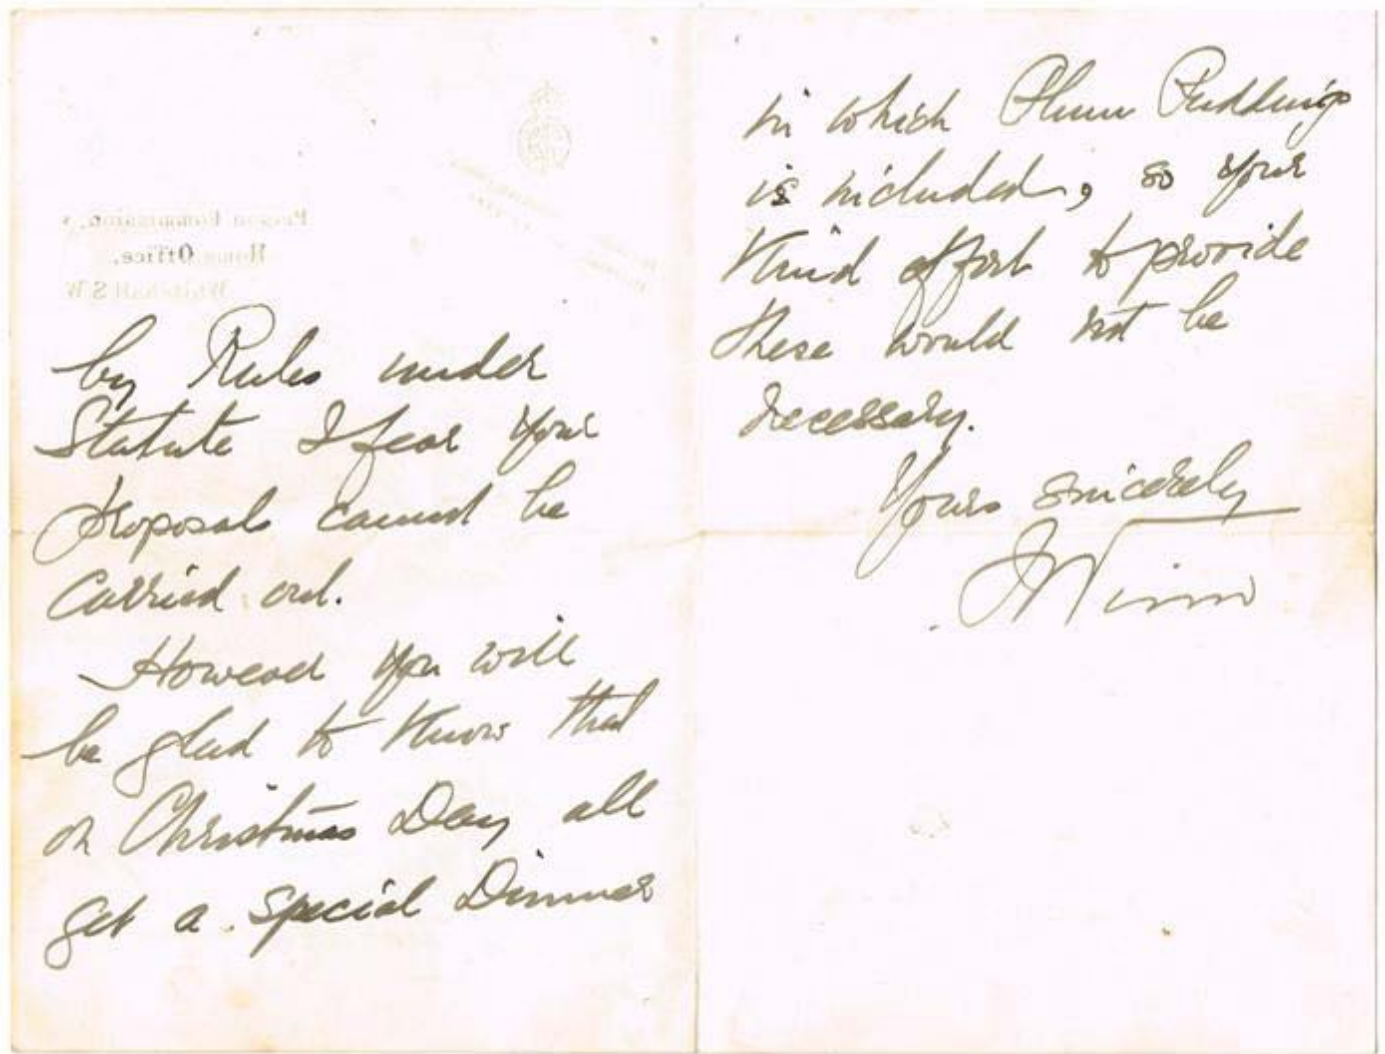 Prison Commission,
Home Office,
Whitehall S W
by Rules under
Statute I fear your
proposals cannot be
carried out.
However you will
be glad to know that
on Christmas Day all
get a special Dinner
in which Plum Pudding
is included, so your
kind effort to provide
these would not be
necessary.
Yours sincerely